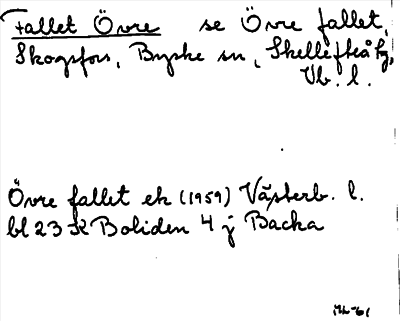 Fallet Övre se Övre fallet,
Skogsfors, Byske sn, Skellefteå tg,
Vb. l.
Övre fallet ek (1959) Västerb. l.
bl 23 K Boliden 4 j Backa